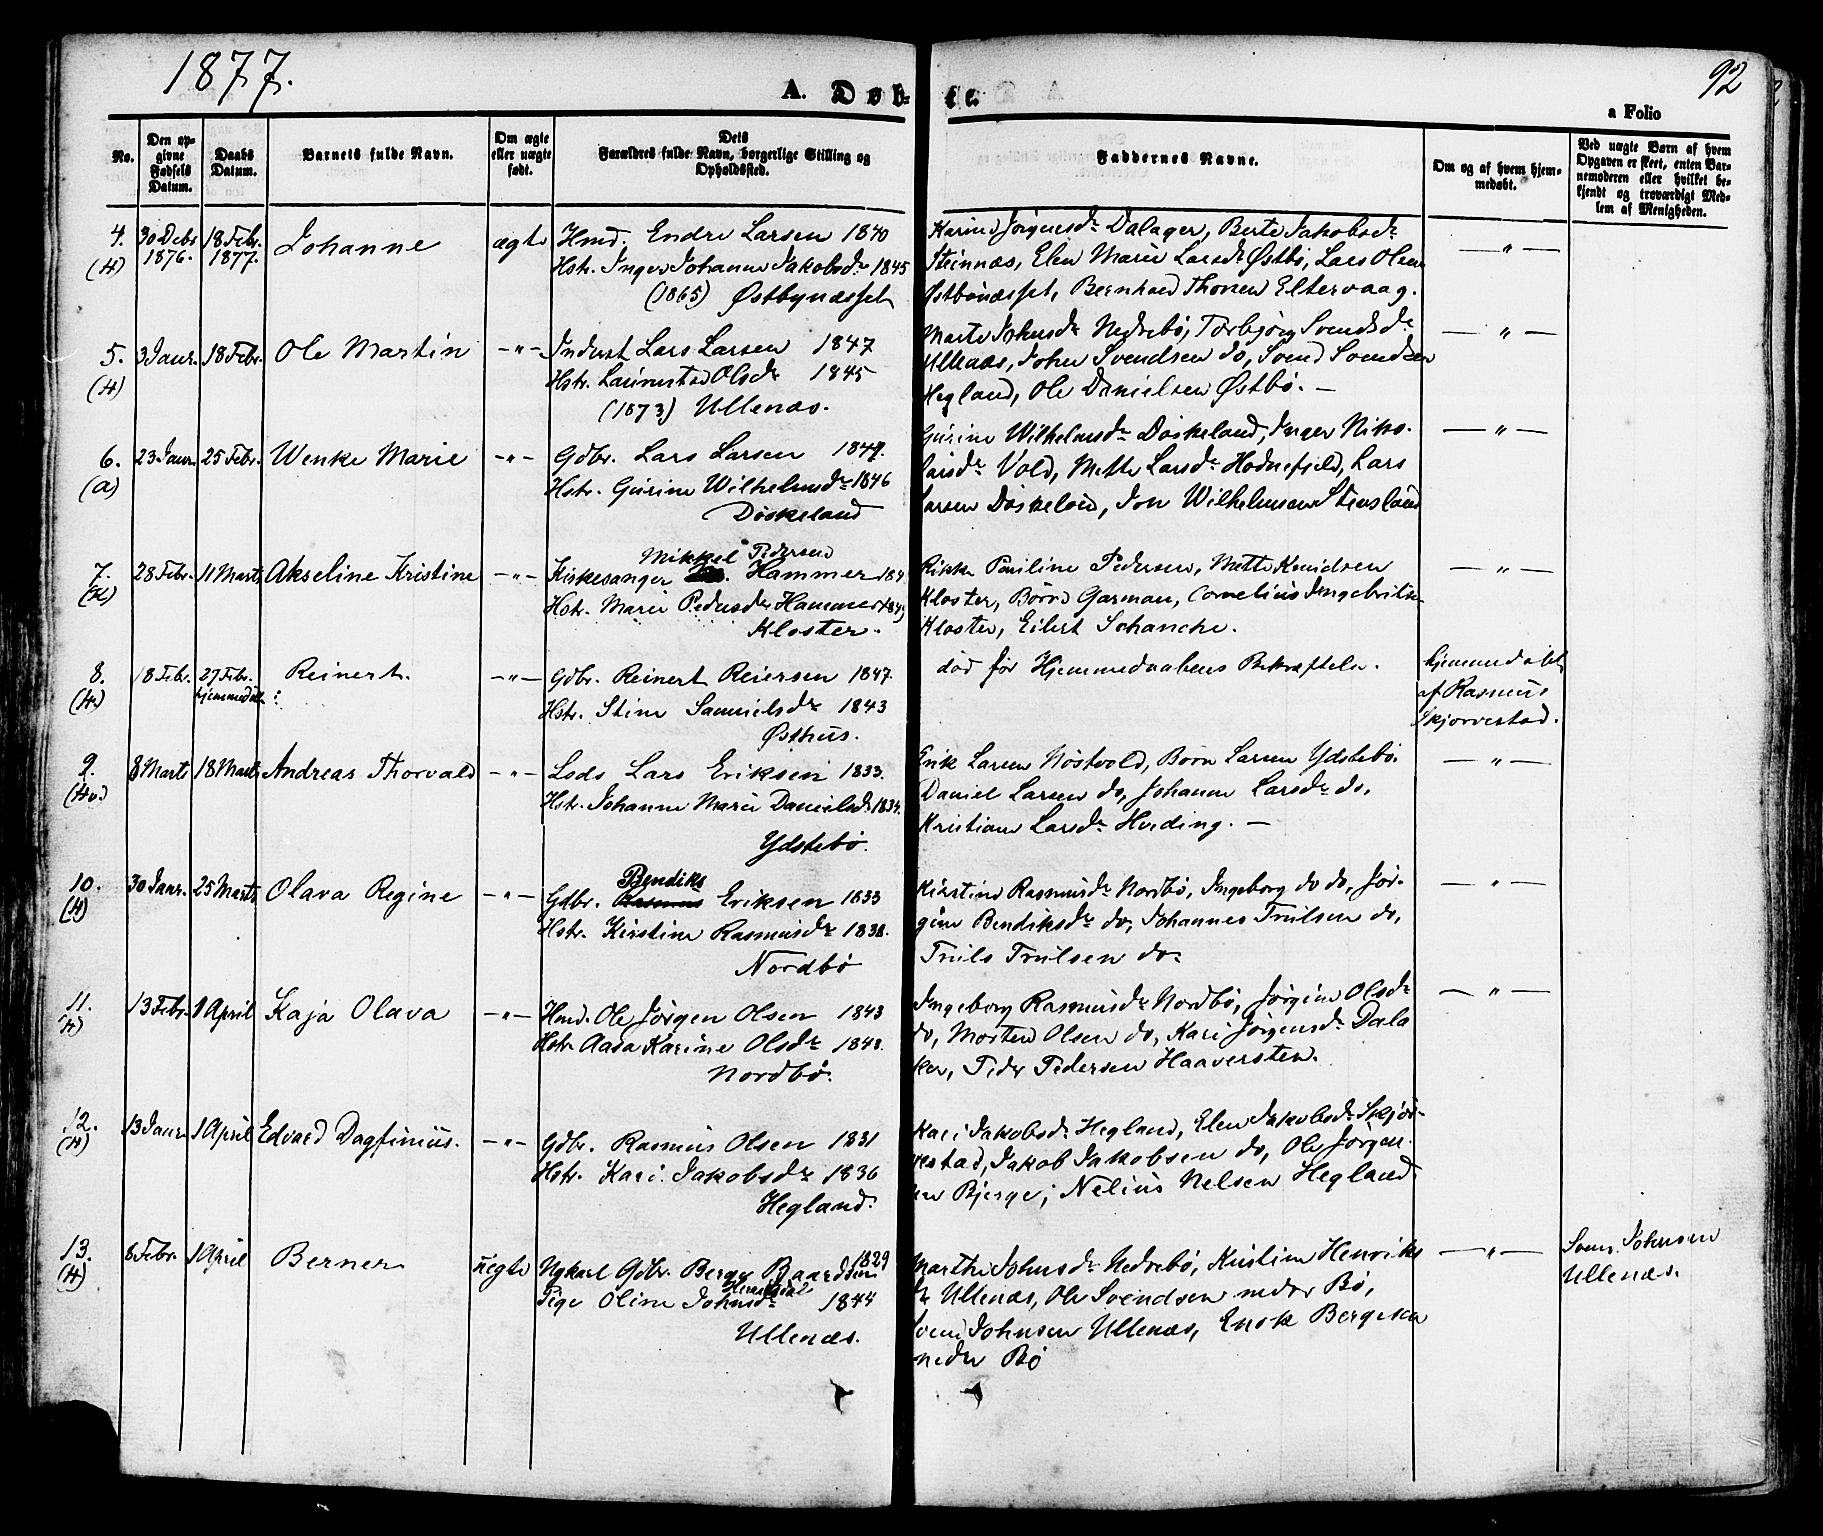 1877.
A. Døb-
te.
92
a Folio
No.
Den op-
givne
Fødsels
Datum.
Daabs
Datum.
Barnets fulde Navn.
Om ægte
eller uægte
født.
Dets
Forældres fulde Navn, borgerlige Stilling og
Opholdssted.
Faddernes Navne.
Om og af hvem hjem-
medøbt.
Ved uægte Børn af hvem
Opgaven er skeet, enten Bar-
nemoderen eller hvilket be-
kjendt og troværdigt Med-
lem af Menigheden.
4. 30 Debr 18 Febr. Johanne ægte Hmd. Endre Larsen 1840
(H) 1876. 1877. Hstr. Inger Johanne Jakobsdr 1845
(1865) Østbynæsset
Karine Jørgensdr Dalager, Berte Jakobsdr
Steinnæs, Elen Marie Larsdr Østbø, Lars Olsen
Østbønæsset, Bernhard Thonsen Eltervaag.
— " —
5. 3 Janr. 18 Febr. Ole Martin —"— Inderst Lars Larsen 1847
(H) Hstr. Olsdr 1845
(1873) Ullenæs.
Marte Johnsdr Nedrebø, Torbjørg Svendsdr
Ullenæs, John Svendsen do, Svend Svendsen
Hegland, Ole Danielsen Østbø. —
— " —
6. 23 Janr. 25 Febr. Wenke Marie —"— Gdbr. Lars Larsen 1849.
(A) Hstr. Gurine Wilhelmsdr 1846
Døskeland
Gurine Wilhelmsdr Døskeland, Inger Niko-
laisdr Vold, Mette Larsdr Hodnefjeld, Lars
Larsen Døskeland, Jon Wilhelmsen Stensland
— " —
7. 28 Febr. 11 Marts Akseline Kristine —"— Mikkel Pedersen
(Kl) Kirkesanger Hammer 184
Hstr. Marie Pedersdr Hammer 1849
Kloster.
Rikke Pauline Pedersen, Mette Knudsen
Kloster, Børre Garman, Cornelius Ingebritsen
Kloster, Eilert Schanche.
— " —
8. 18 Febr. 27 Febr. Reinert. —"— Gdbr. Reinert Reiersen 1847.
(H) hjemmedøbt: Hstr. Stine Samuelsdr 1843
Østhus.
død før Hjemmedaabens Bekræftelse.
hjemmedøbt
af Rasmus
Skjørvestad.
9. 8 Marts 18 Marts Andreas Thorvald —"— Lods Lars Eriksen 1833.
(Hv.) Hstr. Johanne Marie Danielsdr 1834.
Ydstebø.
Erik Larsen Nøstvold, Børn Larsen Ydstebø.
Daniel Larsen do, Johanne Larsdr do,
Kristiane Larsdr Hviding. —
— " —
10. 30 Janr. 25 Marts Olava Regine —"— Bendiks
(H) Gdbr. Rasmus Eriksen 1833
Hstr. Kirstine Rasmusdr 1838.
Nordbø
Kirstine Rasmusdr Nordbø, Ingeborg do do, Jør-
gine Bendiksdr do, Johannes Trulsen do,
Truls Trulsen do.
— " —
11. 13 Febr. 1 April Kaja Olava —"— Hmd. Ole Jørgen Olsen 1843
(H) Hstr. Aasa Karine Olsdr 1848.
Nordbø.
Ingeborg Rasmusdr Nordbø, Jørgine Olsdr
do, Morten Olsen do, Kari Jørgensdr Dala
ker, Peder Pedersen Haaversten.
— " —
12. 13 Janr. 1 April Edvard Dagfinius. —"— Gdbr. Rasmus Olsen 1831
(H) Hstr. Kari Jakobsdr 1836
Hegland.
Kari Jakobsdr Hegland, Elen Jakobsdr Skjør-
vestad, Jakob Jakobsen do, Ole Jørgen-
sen Bjerge, Nelius Nelsen Hegland.
13. 8 Febr. 1 April Berner uægte Ugkarl Gdbr. Berge Baardsen 1829
(H) Pige Oline Johnsdr 1844
Ullenæs.
Marthe Johnsdr Nedrebø, Kirstine Henriks
dr Ullenæs, Ole Svendsen nedre Bø,
Svend Johnsen Ullenæs, Enok Bergesen
nedre Bø
— " —
Svend Johnsen
Ullenæs.